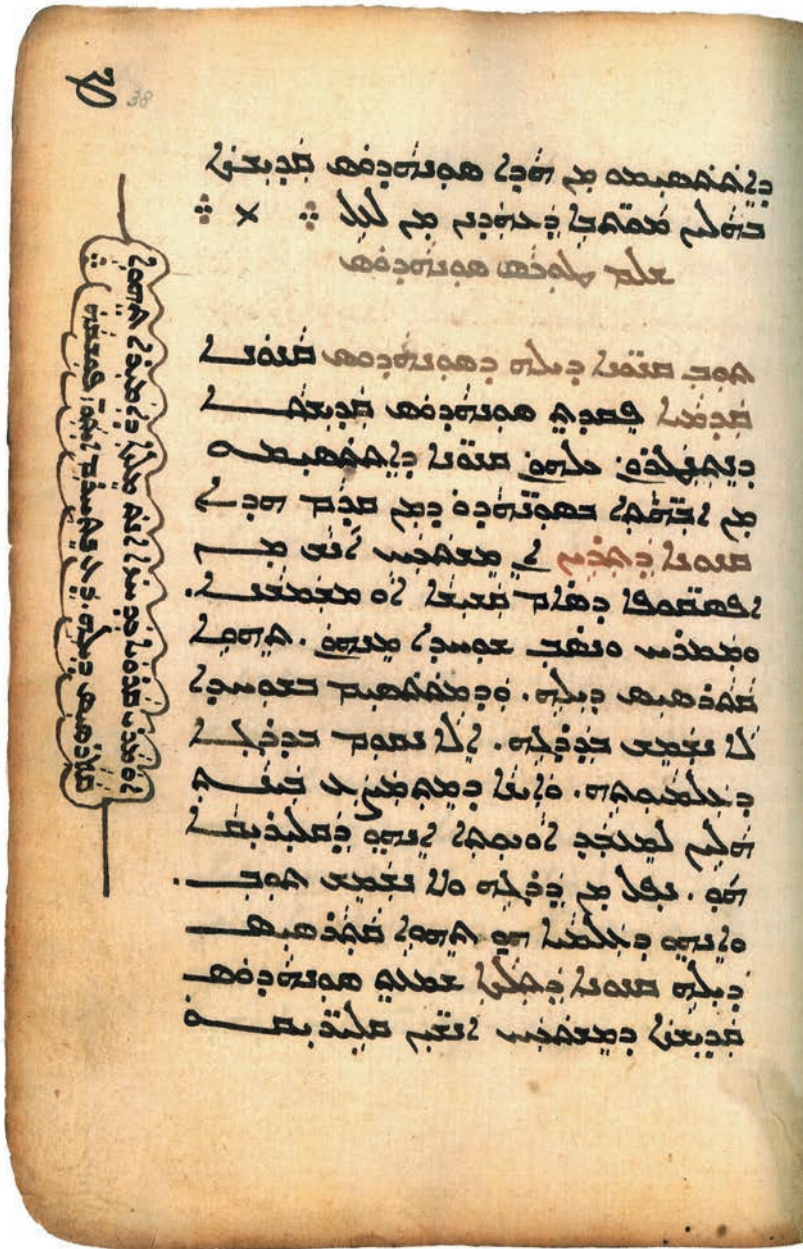 38
ܕܐܬܬܣܝܡܘ ܡܢ ܗܕܐ ܣܘܢܗܕܘܣ ܩܕܝܫܬܐ
ܒܗܠܝܢ ܡܘܬܒܐ ܕܥܗܕܢ ܡܢ ܠܥܠ ܀ × ܀
ܫܠܡ ܛܘܟܣ ܣܘܢܗܕܘܣ
ܬܘܒ ܩܢܘܢܐ ܕܝܠܗ ܕܣܘܢܗܕܘܣ ܩܢܘܢܐ
ܩܕܡܝܐ ܦܩܕܬ ܣܘܢܗܕܘܣ ܩܕܝܫܬܐ
ܕܢܬܢܛܪܘܢ ܟܠܗܘܢ ܩܢܘܢܐ ܕܐܬܬܣܝܡܘ
ܡܢ ܐܒܗܬܐ ܒܣܘܢܗܕܘ ܕܡܢ ܩܕܡ ܗܕܐ
ܩܢܘܢܐ ܕܬܪܝܢ ܐܢ ܡܫܬܟܚ ܐܢܫ ܡܢ
ܐܦܣܩܘܦܐ ܕܣܐܡ ܩܫܝܫܐ ܐܘ ܡܫܡܫܢܐ.
ܘܡܡܪܚ ܘܢܣܒ ܫܘܚܕܐ ܡܢܗܘܢ. ܬܗܘܐ
ܩܬܪܣܝܣ ܕܝܠܗ. ܘܕܡܬܬܣܝܡ ܒܫܘܚܕܐ
ܠܐ ܢܫܡܫ ܒܕܪܓܗ. ܐܠܐ ܢܩܘܡ ܒܕܪܓܐ
ܕܥܠܡܝܘܬܗ. ܘܐܝܢܐ ܕܡܬܡܨܥ ܒܝܢܬ
ܗܠܝܢ ܠܡܥܒܕ ܐܘܝܘܬܐ ܐܢܗܘ ܕܩܠܝܪܝܩܐ
ܗܘ. ܢܦܠ ܡܢ ܕܪܓܗ ܘܠܐ ܢܫܡܫ ܬܘܒ.
ܘܐܢܗܘ ܕܥܠܡܝܐ ܗܘ ܬܗܘܐ ܩܬܪܣܝܣ
ܕܝܠܗ ܩܢܘܢܐ ܕܬܠܬܐ ܫܡܥܬ ܣܘܢܗܕܘܣ
ܩܕܝܫܬܐ ܕܡܫܬܟܚܝܢ ܐܢܫܝܢ ܩܠܝܪܝܩܘ